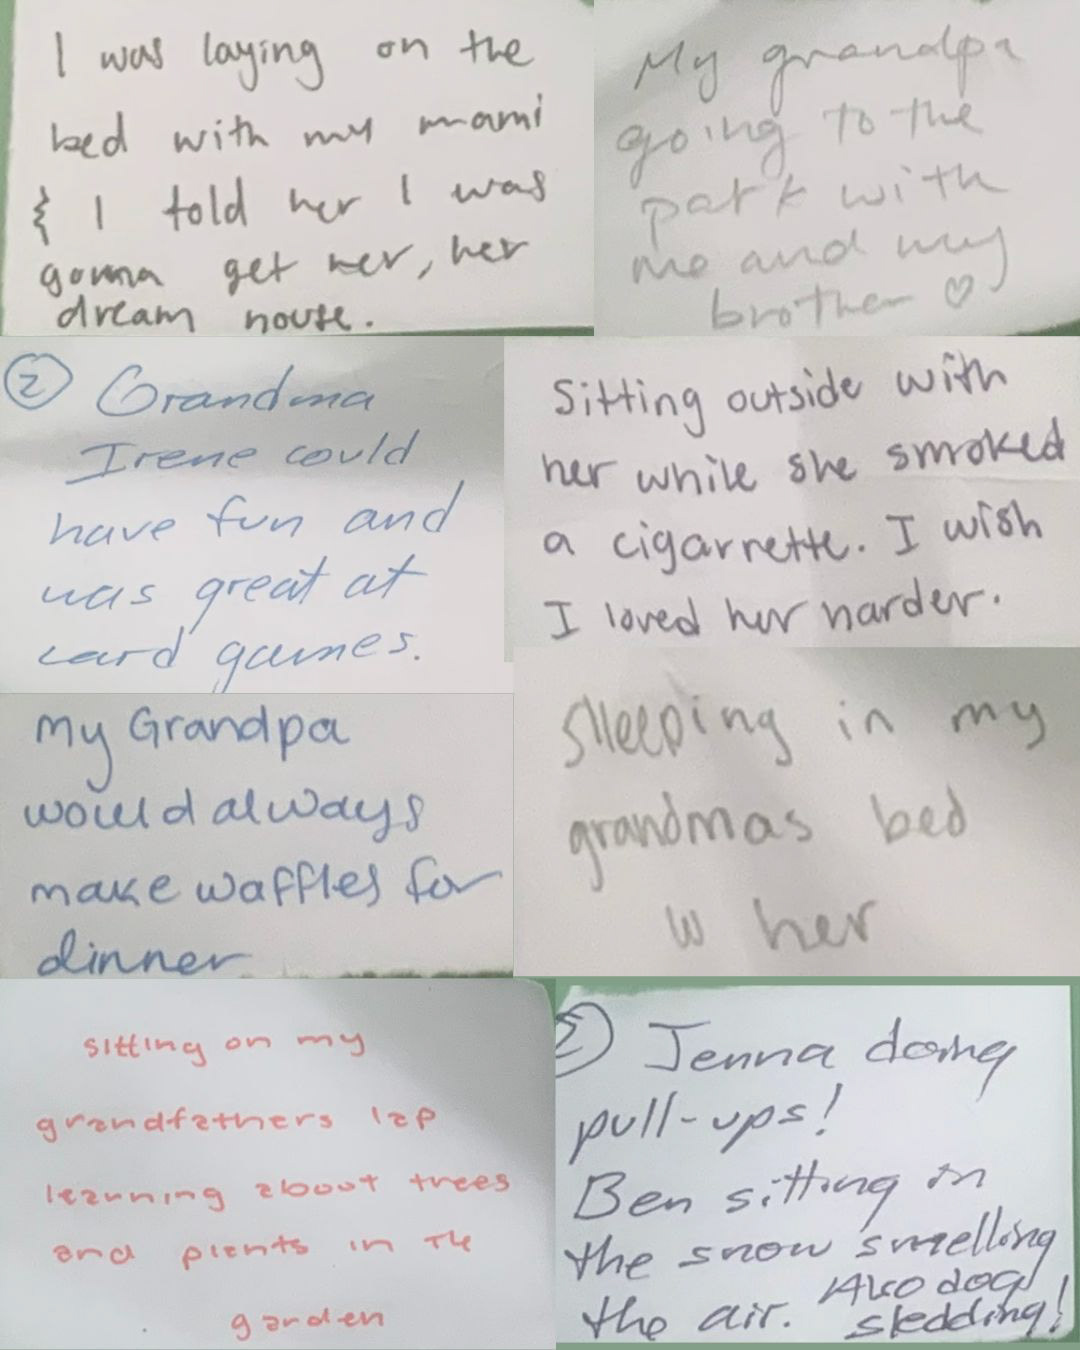 I was laying on the
bed with my mami
& I told her I was
gonna get her, her
dream house.
My grandpa
going to the
park with
me and my
brother ♡
② Grandma
Irene could
have fun and
was great at
card games.
Sitting outside with
her while she smoked
a cigarrette. I wish
I loved her harder.
My Grandpa
would always
make waffles for
dinner
Sleeping in my
grandmas bed
w her
sitting on my
grandfathers lap
learning about trees
and plants in the
garden
Jenna doing
pull-ups!
Ben sitting in
the snow smelling
the air. Also dog
sledding!